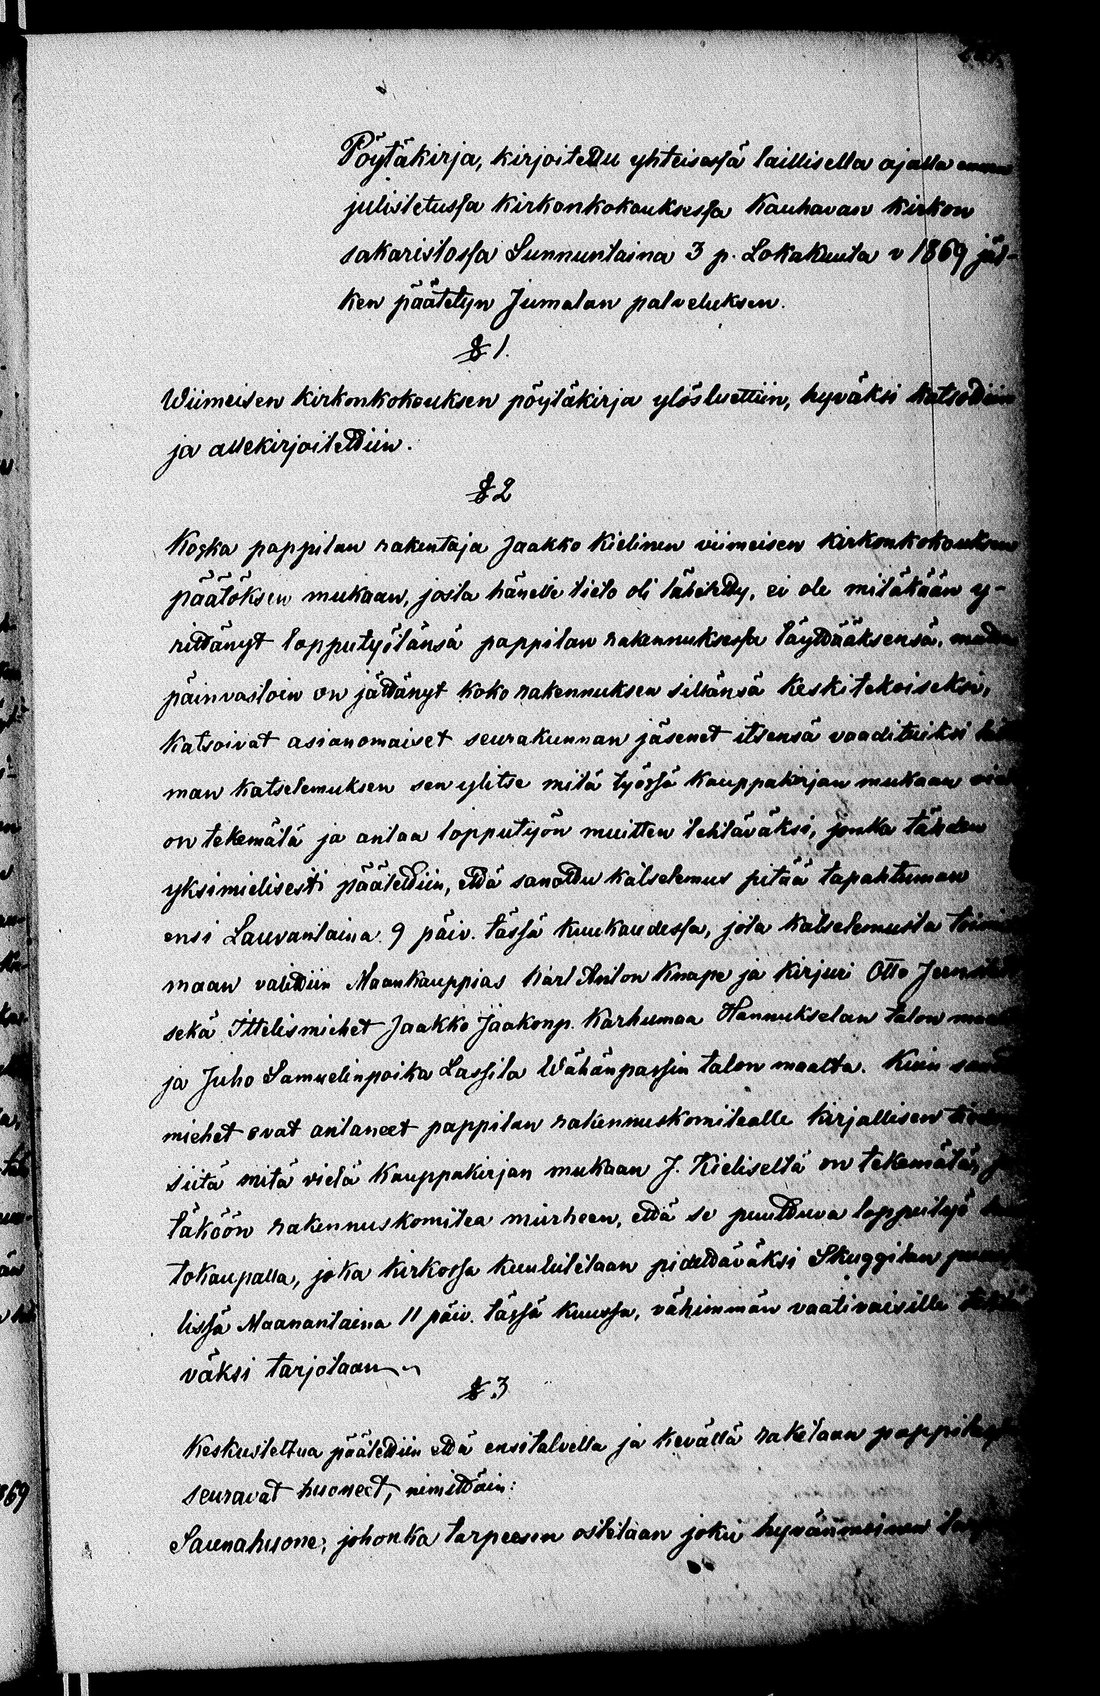 Pöytäkirja, kirjoitettu yhteisessä laillisella ajalla ennen
julistetussa kirkonkokouksessa Kauhavan kirkon
sakaristossa Sunnuntaina 3 p. Lokakuuta v 1869 jäl-
ken päätetyn Jumalan palveluksen.
§ 1.
Wiimeisen kirkonkokouksen pöytäkirja ylösluettiin, hyväksi katsottiin
ja allekirjoitettiin.
§ 2
Koska pappilan rakentaja Jaakko Kielinen viimeisen kirkonkokouksen
päätöksen mukaan, josta hänelle tieto oli lähetetty, ei ole mitäkään y-
rittänyt lopputyötänsä pappilan rakennuksessa täyttääksensä, mutta
päinvastoin on jättänyt koko rakennuksen sillänsä keskitekoiseksi,
katsoivat asianomaiset seurakunnan jäsenet itsensä vaadituiksi
man katselemuksen sen ylitse mitä työssä kauppakirjan mukaan
on tekemätä ja antaa lopputyön muitten tehtäväksi, jonka tähden
yksimielisesti päätettiin, että sanottu katselemus pitää tapahtuman
ensi Lauvantaina 9 päiv. tässä kuukaudessa, jota katselemusta
maan valittiin Maankauppias Karl Anton Knape ja kirjuri Otto
sekä Ittelismiehet Jaakko Jaakonp. Karhumaa Hannukselan talon
ja Juho Samuelinpoika Lassila Wähänpassin talon maalta. Kuin
miehet ovat antaneet pappilan rakennuskomitealle kirjallisen
siitä mitä vielä kauppakirjan mukaan J. Kieliseltä on tekemätä,
täköön rakennuskomitea murheen, että se puuttuva lopputyö
tokaupalla, joka kirkossa kuulutetaan pidettäväksi Skuggilan
lissä Maanantaina 11 päiv. tässä kuussa, vähimmän vaativaisille
väksi tarjotaan
§ 3
Keskusteltua päätettiin että ensitalvella ja keväillä raketaan
seuravat huoneet, nimittäin:
Saunahuone, johonka tarpeesen ostetaan joku hyvänmoinen